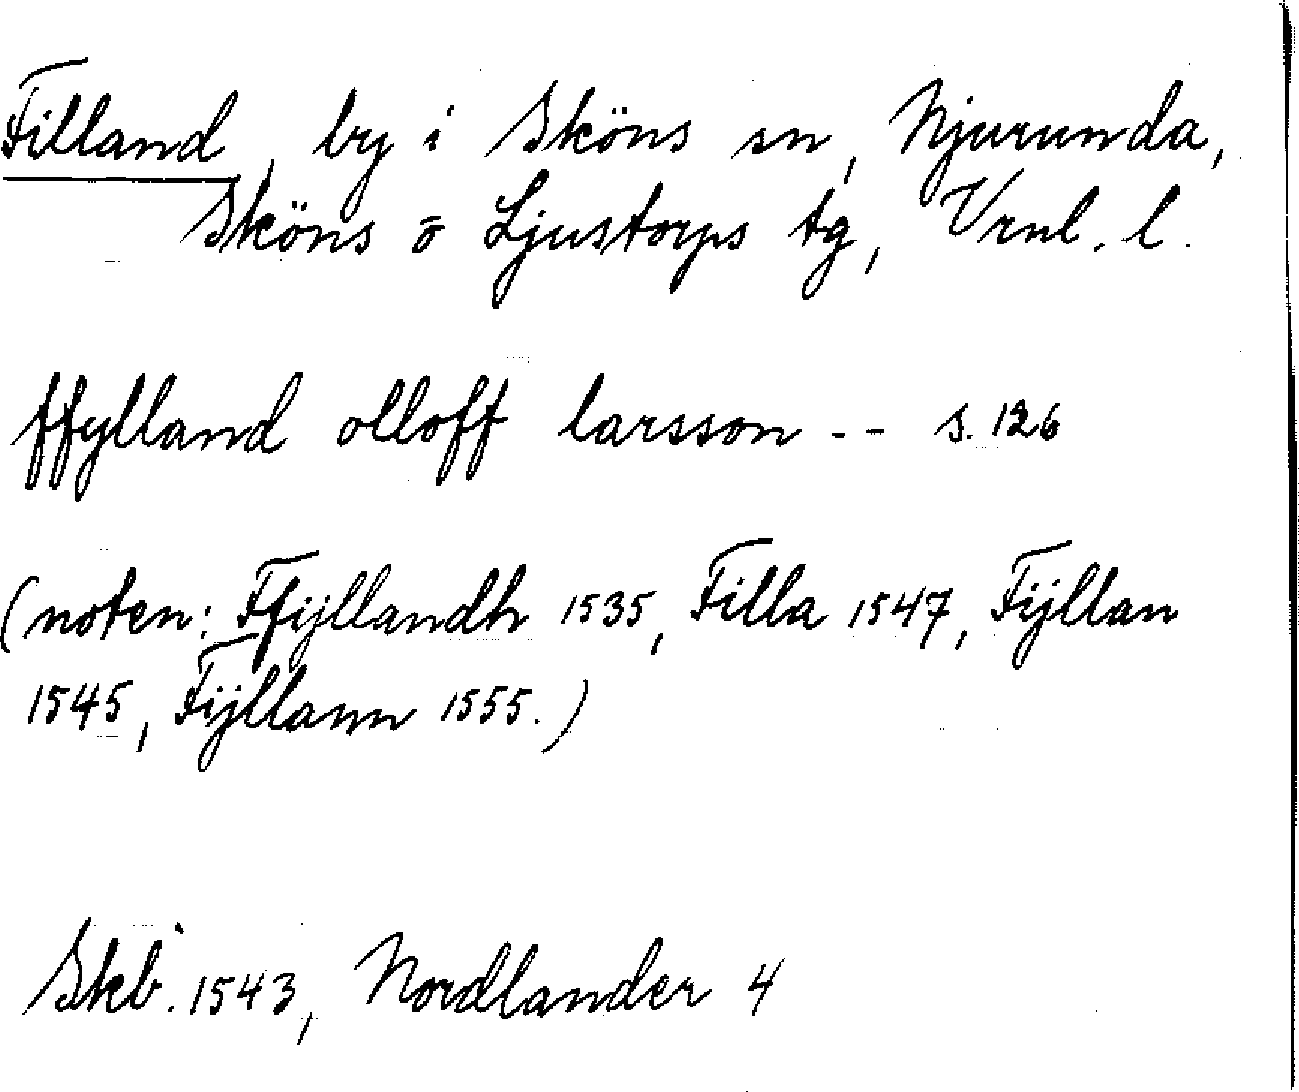 Filland, by i Sköns sn, Njurunda,
Sköns o Ljustorps tg, Vrnl. l.
ffylland olloff larsson -- s. 126
(noten: Ffijllandh 1535, Filla 1547, Fÿllan
1545, Fÿllann 1555.)
Skb. 1543, Nordlander 4